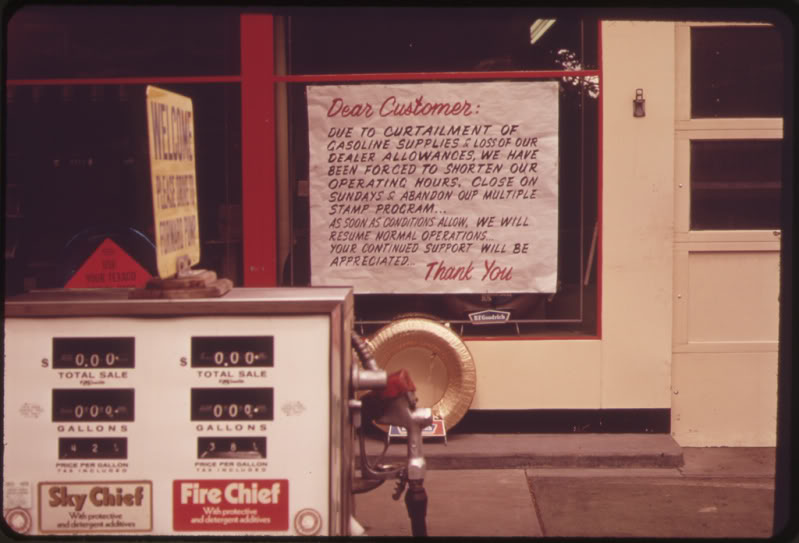 Dear Customer:
DUE TO CURTAILMENT OF
GASOLINE SUPPLIES & LOSS OF OUR
DEALER ALLOWANCES, WE HAVE
BEEN FORCED TO SHORTEN OUR
OPERATING HOURS, CLOSE ON
SUNDAYS & ABANDON OUR MULTIPLE
STAMP PROGRAM...
AS SOON AS CONDITIONS ALLOW, WE WILL
RESUME NORMAL OPERATIONS...
YOUR CONTINUED SUPPORT WILL BE
APPRECIATED...
Thank You
WELCOME
PLEASE
USE
YOUR TEXACO
B.F.Goodrich
$ 0.00
TOTAL SALE
00.0
GALLONS
42
PRICE PER GALLON
TAX INCLUDED
Sky Chief
With protective
and detergent additives
$ 0.00
TOTAL SALE
00.0
GALLONS
38
PRICE PER GALLON
TAX INCLUDED
Fire Chief
With protective
and detergent additives